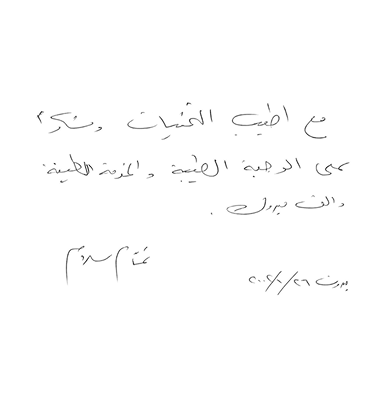 مع اطيب التمنيات وشكراً
على الوجبة الطيبة والخدمة اللطيفة
والف مبروك.
تمام سلام
بيروت